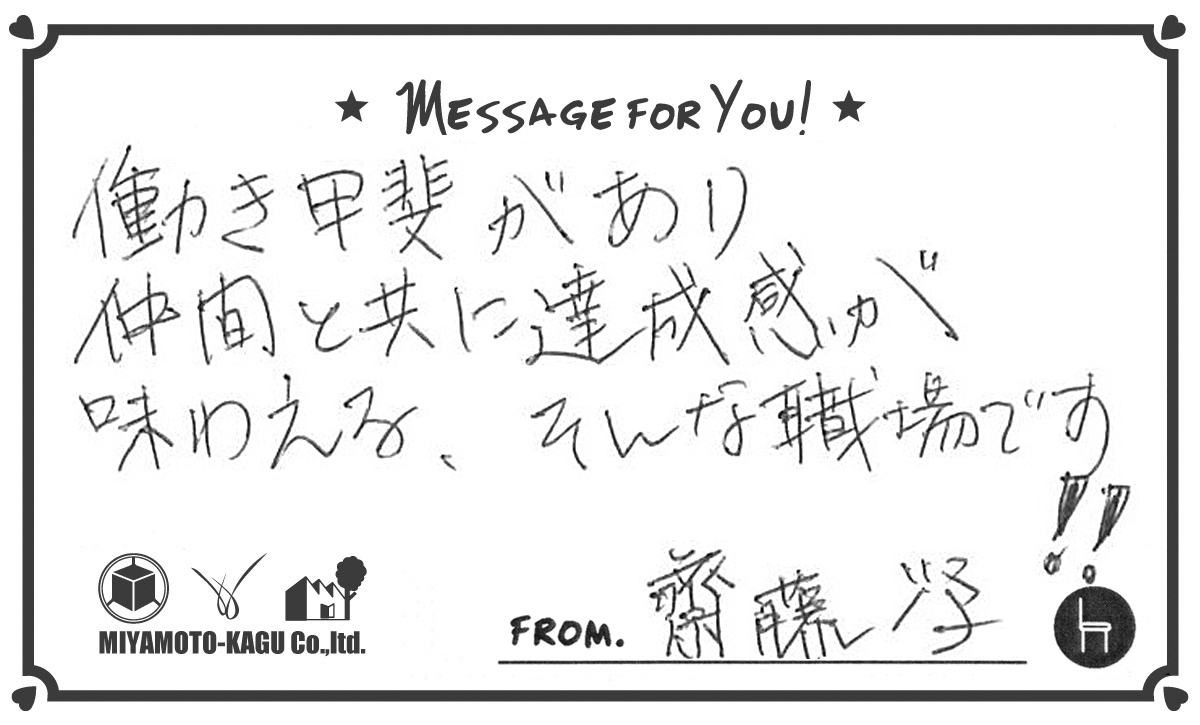 ★ MESSAGE FOR YOU! ★
働き甲斐があり
仲間と共に達成感が
味わえる、そんな職場です!!
MIYAMOTO-KAGU Co.,ltd.
FROM. 齋藤 学